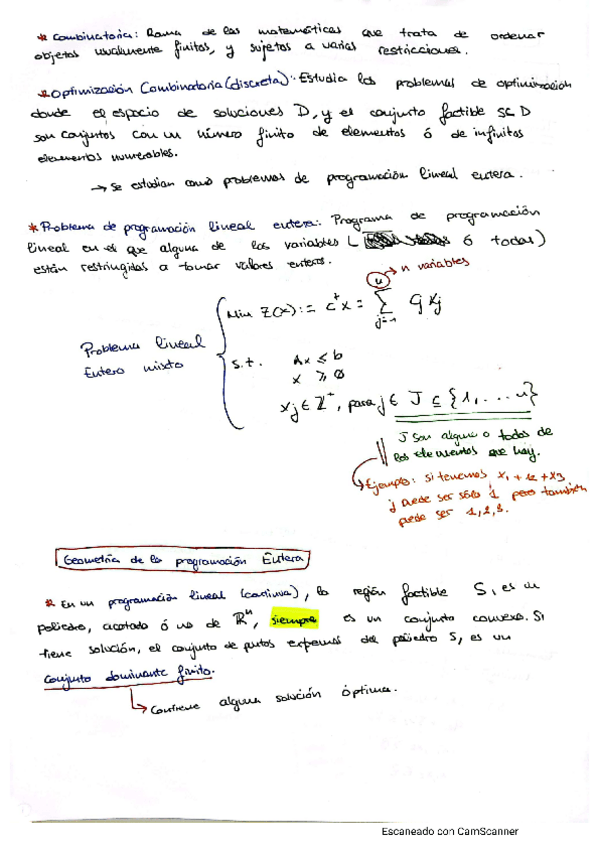 * Combinatoria: Rama de las matemáticas que trata de ordenar
objetos usualmente finitos, y sujetos a varias restricciones.
* Optimización Combinatoria (discreta): Estudia los problemas de optimización
donde el espacio de soluciones D, y el conjunto factible S⊆D
son conjuntos con un número finito de elementos ó de infinitos
elementos numerables.
→ Se estudian como problemas de programación lineal entera.
* Problema de programación lineal entera: Programa de programación
lineal en el que alguna de las variables ( ó todas)
están restringidas a tomar valores enteros.
n → n variables
Min Z(x) := cᵗx = Σ cj xj
j=1
Problema lineal
Entero mixto
s.t. Ax ≤ b
x ≥ 0
xj ∈ Z⁺, para j ∈ J ⊆ {1, ... n}
J son alguna o todos de
los elementos que hay.
Ejemplo: si tenemos x1 + x2 + x3
j puede ser sólo 1 pero también
puede ser 1,2,3.
Geometría de la programación Entera
* En un programación lineal (continua), la región factible S, es un
poliedro, acotado ó no de ℝⁿ, siempre es un conjunto convexo. Si
tiene solución, el conjunto de puntos extremos del poliedro S, es un
conjunto dominante finito.
→ Contiene alguna solución óptima.
Escaneado con CamScanner